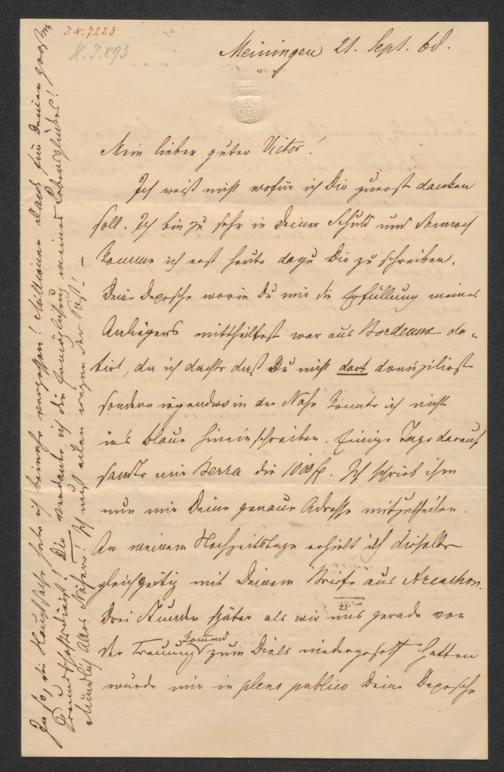 I.N. 7223
H.I. 893
Meiningen 21. Sept. 68.
Mein lieber guter Victor!
Ich weiß nicht wofür ich Dir zuerst danken
soll. Ich bin zu sehr in Deiner Schuld und dennoch
komme ich erst heute dazu Dir zu schreiben.
Deine Depesche worin Du mir die Erfüllung meines
Anliegens mittheiltest war aus Bordeaux da-
tirt, da ich dachte daß Du nicht dort domizilirst
sondern irgendwo in der Nähe konnte ich nicht
in's Blaue hineinschreiben. Einige Tage darauf
sandte mir Bezza die 1000 f. Ich schrieb ihm
nun mir Deine genaue Adresse mitzutheilen.
An meinem Hochzeitstage erhielt ich dieselbe
gleichzeitig mit Deinem Briefe aus Arcachon.
Drei Stunden später als wir uns gerade von
der Trauung kommend zum Diner niedergesetzt hatten
wurde mir in pleno publico Deine Depesche
Ja so, die Hauptsache hätte ich beinahe vergessen! Millionen Dank für Deinen großen
Freundschaftsdienst! Dir verdanke ich die Ermöglichung meines Lebensglückes!
Mündlich Alles Nähere. Ich muß eilen wegen der Post! —